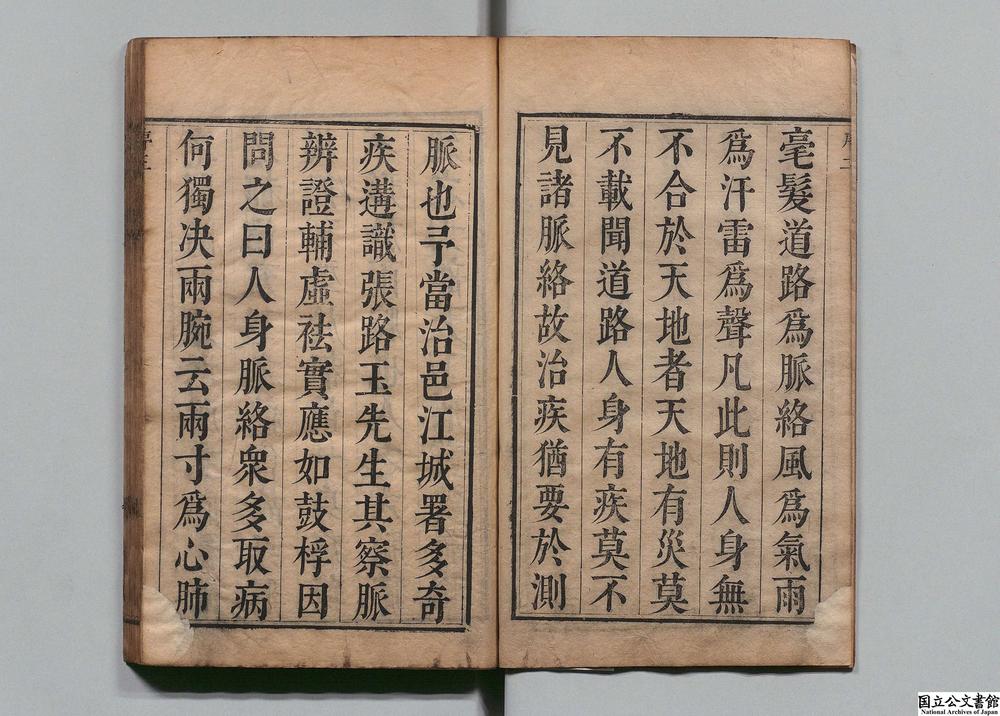 毫髮道路爲脈絡風爲氣雨
爲汗雷爲聲凡此則人身無
不合於天地者天地有災莫
不載聞道路人身有疾莫不
見諸脈絡故治疾猶要於測
脈也予當治邑江城署多奇
疾遘識張路玉先生其察脈
辨證輔虛祛實應如鼓桴因
問之曰人身脈絡衆多取病
何獨决兩腕云兩寸爲心肺
国立公文書館
National Archives of Japan